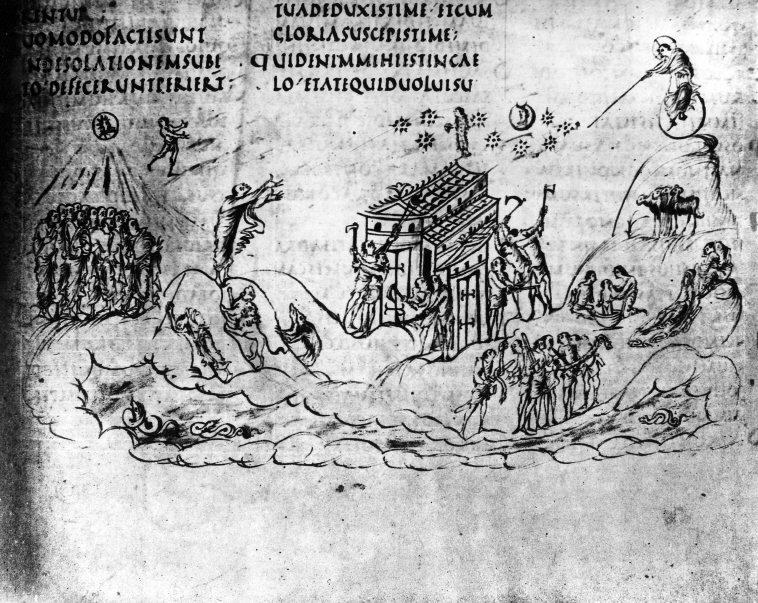 UOMODOFACTISUNT
NDESOLATIONEMSUBI
TO·DEFECERUNTPERIERT:
TUADEDUXISTIME·ETCUM
GLORIASUSCEPISTIME;
QUIDENIMMIHIESTINCAE
LO·ETATEQUIDUOLUISU